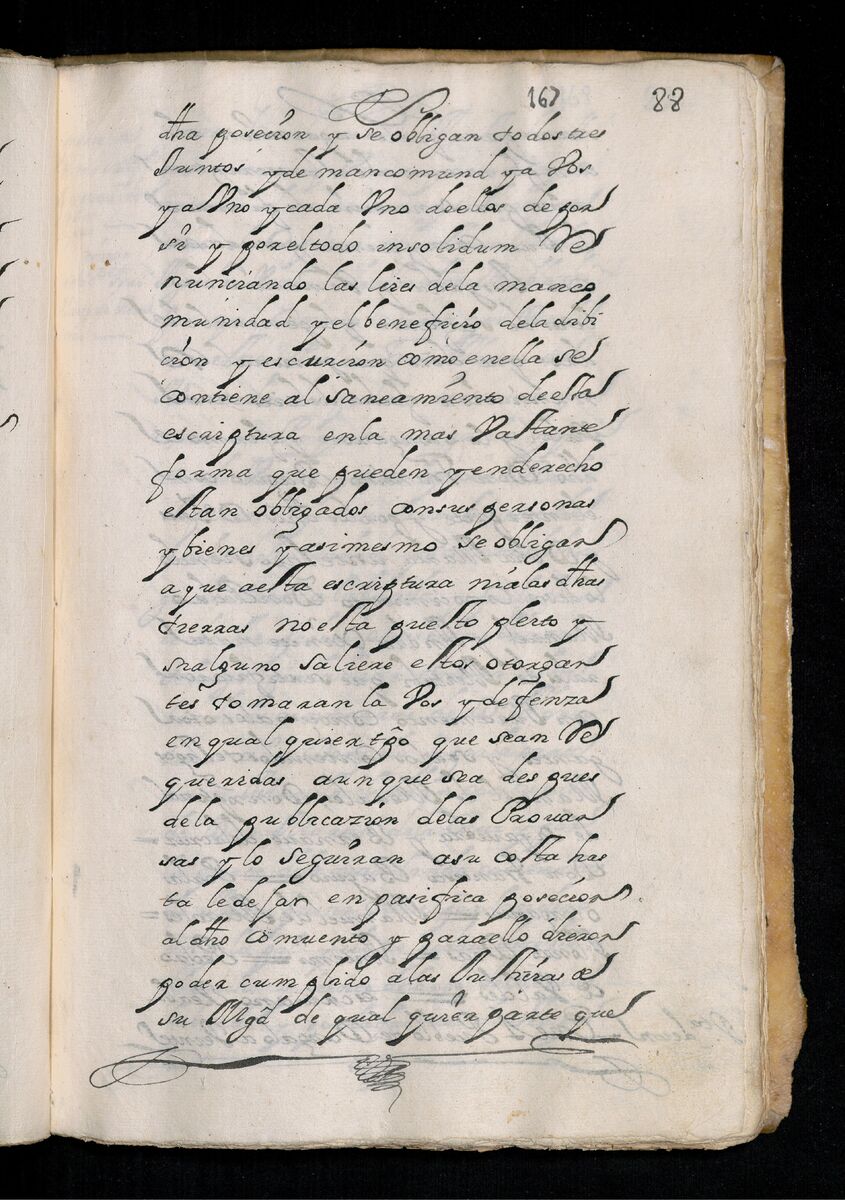 167 88
dha posecion y se obligan todos tres
Juntos y de mancomund y a Vos
y a Vno y cada Vno de ellos de por
si y por el todo insolidum Re
nunciando las leies de la manco
munidad y el beneficio de la dibi
cion y escurcion como en ella se
contiene al saneamiento de esta
escriptura en la mas Vastante
forma que pueden y en derecho
estan obligados con sus personas
y bienes y asimesmo se obligan
a que a esta escriptura ni a las dhas
tierras no esta puesto pleito y
si alguno saliere estos otorgan
tes tomaran la Vos y defenza
en qual quier tpo que sean Re
queridas aun que sea despues
de la publicazion de las Provan
sas y lo seguiran a su costa has
ta le dejar en pasifica posecion
al dho comuento y para ello dieron
poder cumplido a las Justicias de
su Mgd de qual quier parte que